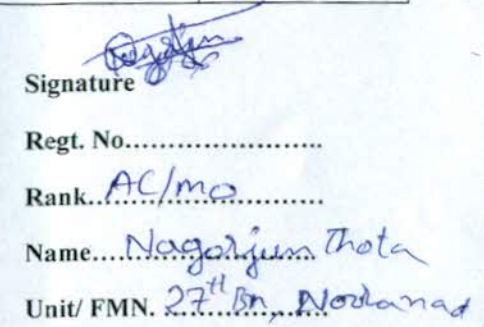 Signature
Regt. No.......................
Rank..AC/MO....................
Name....Nagarjun Thota
Unit/ FMN. 27th Bn, Nooranad